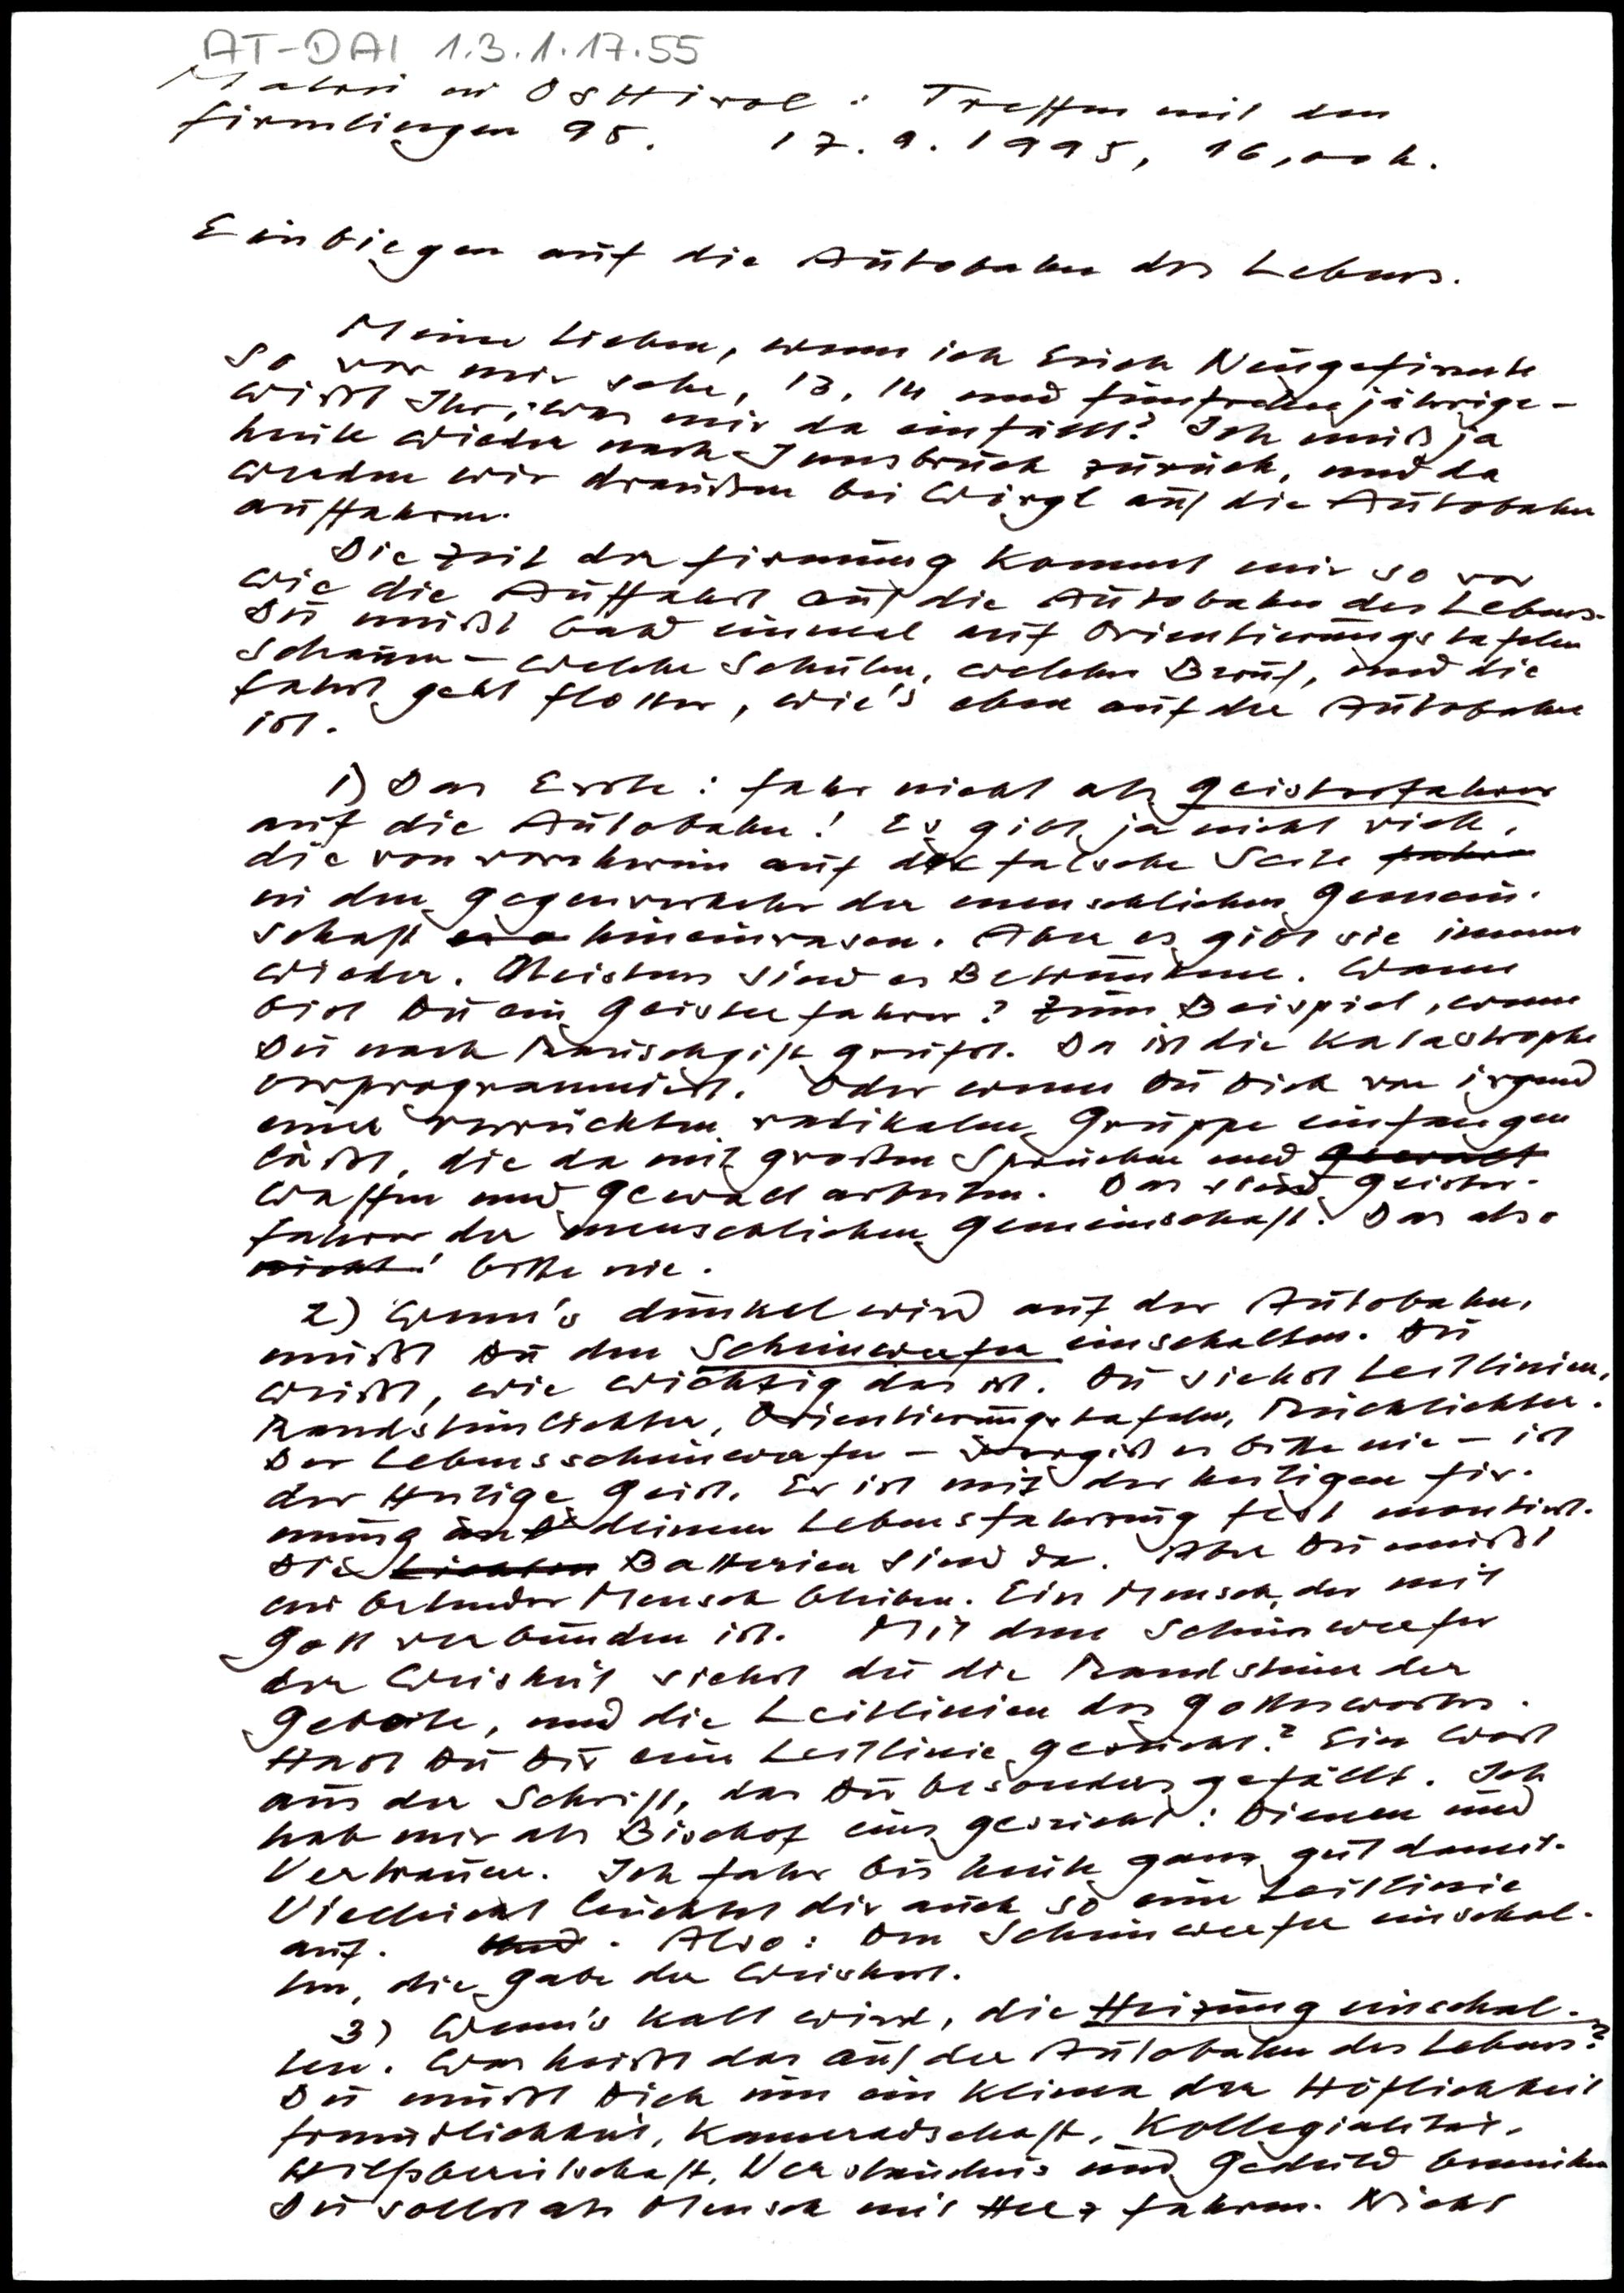 AT-DAI 1.3.1.17.55
Matrei in Osttirol: Treffen mit den
Firmlingen 95. 17.9.1995, 16,00 h.
Einbiegen auf die Autobahn des Lebens.
Meine Lieben, wenn ich Euch Neugefirmte
so vor mir sehe, 13, 14 und fünfzehnjährige -
wißt Ihr, was mir da einfällt? Ich muß ja
heute wieder nach Innsbruck zurück, und da
werden wir draußen bei Wörgl auf die Autobahn
auffahren.
Die Zeit der Firmung kommt mir so vor
wie die Auffahrt auf die Autobahn des Lebens.
Du mußt bald einmal auf Orientierungstafeln
schauen - welche Schulen, welchen Beruf, und die
Fahrt geht flotter, wie's eben auf der Autobahn
ist.
1) Das Erste: Fahr nicht als Geisterfahrer
auf die Autobahn! Es gibt ja nicht viele,
die von vornherein auf der falsche Seite fahren
in den Gegenverkehr der menschlichen Gemein-
schaft hineinrasen. Aber es gibt sie immer
wieder. Meistens sind es Betrunkene. Wann
bist Du ein Geisterfahrer? Zum Beispiel, wenn
Du nach Rauschgift greifst. Da ist die Katastrophe
vorprogrammiert. Oder wenn Du Dich von irgend
einer verrückten radikalen Gruppe einfangen
läßt, die da mit großen Sprüchen und Gewalt
Waffen und Gewalt arbeiten. Das sind Geister-
fahrer der menschlichen Gemeinschaft. Das also
nicht! bitte nie.
2) Wenn's dunkel wird auf der Autobahn,
mußt Du den Scheinwerfer einschalten. Du
weißt, wie wichtig das ist. Du siehst Leitlinien,
Randsteinlichter, Orientierungstafeln, Rücklichter.
Der Lebensscheinwerfer - vergiß es bitte nie - ist
der Heilige Geist. Er ist mit der heiligen Fir-
mung an deinem Lebensfahrzeug fest montiert.
Die Lichter Batterien sind da. Aber Du mußt
ein betender Mensch bleiben. Ein Mensch, der mit
Gott verbunden ist. Mit dem Scheinwerfer
der Weisheit siehst du die Randsteine der
Gebote, und die Leitlinien des Gotteswortes.
Hast Du Dir eine Leitlinie gesucht? Ein Wort
aus der Schrift, das Dir besonders gefällt. Ich
hab mir als Bischof eines gesucht: Dienen und
Vertrauen. Ich fahr bis heute ganz gut damit.
Vielleicht leuchtet dir auch so eine Leitlinie
auf. Und. Also: Den Scheinwerfer einschal-
ten, die Gabe der Weisheit.
3) Wenn's kalt wird, die Heizung einschal-
ten. Was heißt das auf der Autobahn des Lebens?
Du mußt Dich um ein Klima der Höflichkeit
Freundlichkeit, Kameradschaft, Kollegialität,
Hilfsbereitschaft, Verständnis und Geduld bemühen
Du sollst als Mensch mit Herz fahren. Nicht